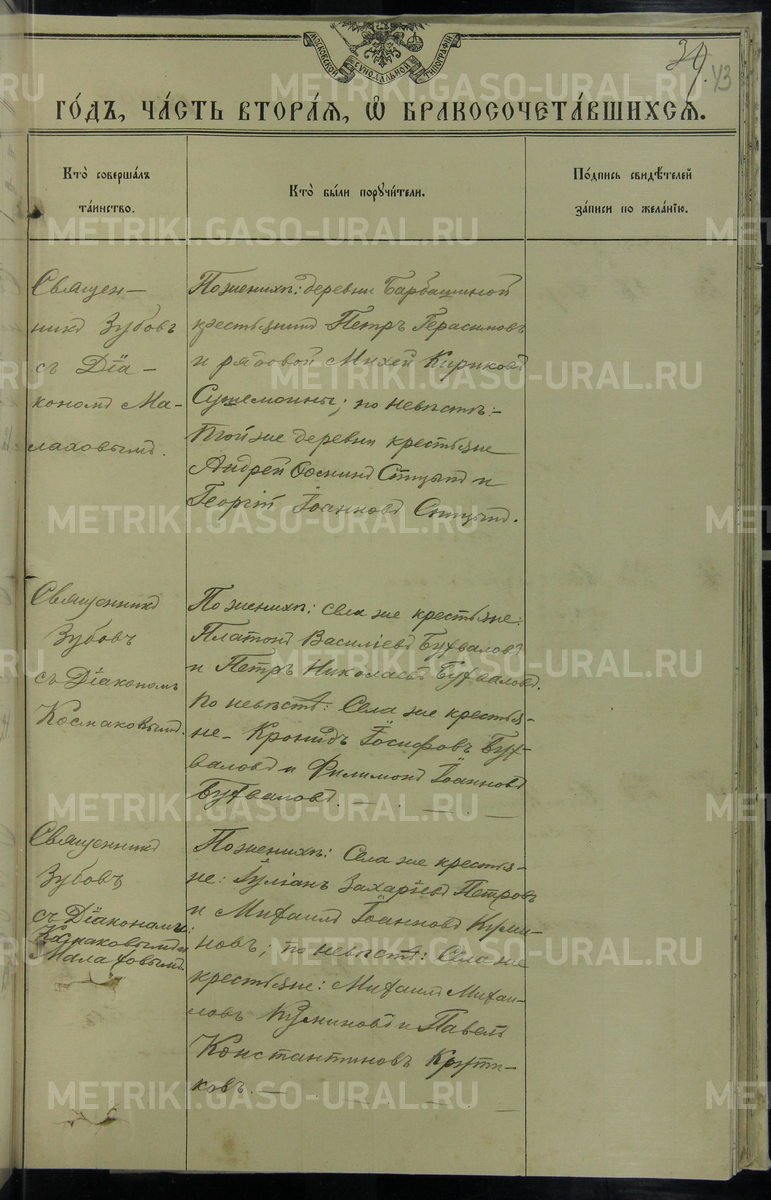 МОСКОВСКОЙ СѴНОДАЛЬНОЙ ТИПОГРАФІИ
39.
43
ГО́ДЪ, ЧА́СТЬ ВТОРА́Я, Ѡ҆ БРАКОСОЧЕТА́ВШИХСЯ.
Кто̀ соверша́лъ
та́инство.
Кто̀ бы́ли поручи́тели.
По́дпись свидѣ́телей
за́писи по жела́нїю.
Священ-
никъ Зубовъ
съ Діа-
кономъ Ма-
лаховымъ.
По женихѣ: деревни Барбашиной
крестьянинъ Петръ Герасимовъ
и рядовой Михей Кириковъ
по невѣстѣ:-
Той же деревни крестьяне
Андрей и
Георгій Іоанновъ
Священникъ
Зубовъ
съ Діакономъ
Космаковымъ.
По женихѣ: села же крестьяне:
Платонъ Василіевъ Бухваловъ
и Петръ Николаевъ Бухваловъ.
По невѣстѣ: Села же крестья-
не- Кронидъ Іосифовъ Бух-
валовъ и Филимонъ Іоанновъ
Бухваловъ.
Священникъ
Зубовъ
съ Діаконами:
Космаковымъ и
Малаховымъ.
По женихѣ: Села же крестья-
не: Іуліанъ Захаріевъ Петровъ
и Михаилъ Іоанновъ Кузми-
новъ; по невѣстѣ: Села же
крестьяне: Михаилъ Михаи-
ловъ Кузминовъ и Павелъ
Константиновъ Крути-
ковъ.
METRIKI.GASO-URAL.RU